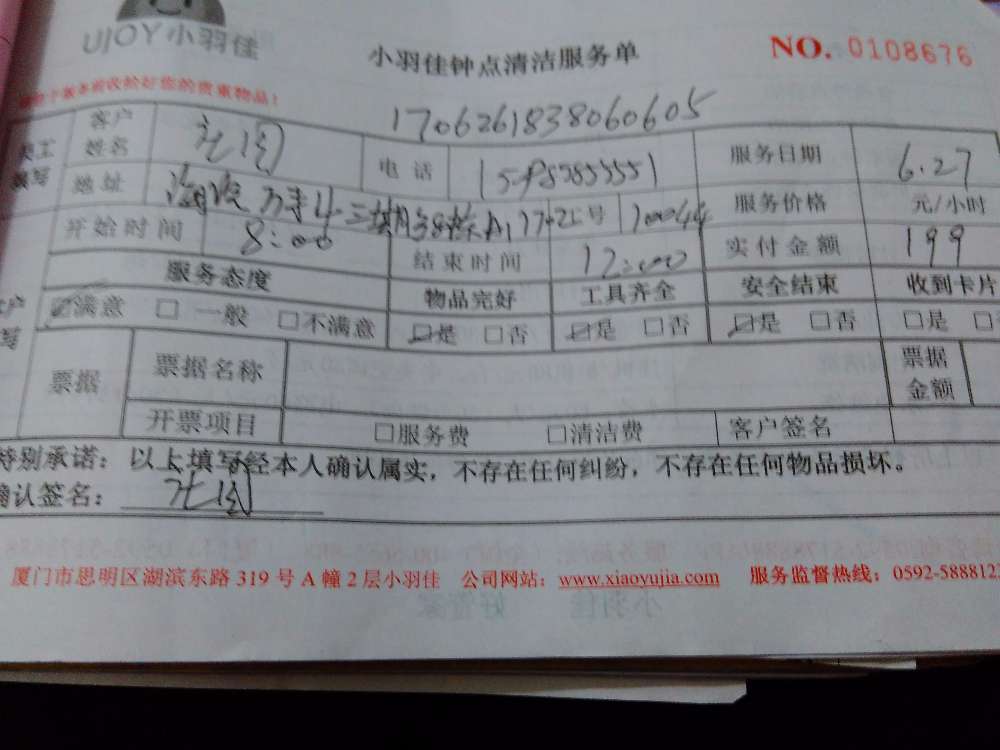 UJOY小羽佳
小羽佳钟点清洁服务单
NO. 0108676
收拾好您的贵重物品！
1706261838060605
客户姓名 电话 服务日期 6.27
地址 服务价格 元/小时
开始时间 8:00 结束时间 12:00 实付金额 199
服务态度 物品完好 工具齐全 安全结束 收到卡片
☑满意 □一般 □不满意 ☑是 □否 ☑是 □否 ☑是 □否 □是
票据 票据名称 票据金额
开票项目 □服务费 □清洁费 客户签名
特别承诺：以上填写经本人确认属实，不存在任何纠纷，不存在任何物品损坏。
确认签名：
厦门市思明区湖滨东路 319 号 A 幢 2 层小羽佳 公司网站：www.xiaoyujia.com 服务监督热线：0592-5888123